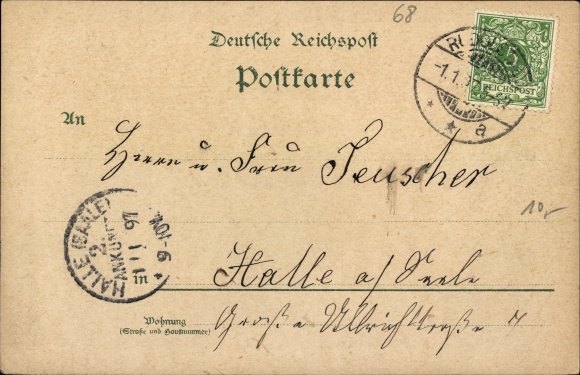 68
Deutsche Reichspost
Postkarte
5
REICHSPOST
1.1.97
a
An
Herrn u. Frau Teuscher
10,-
HALLE (SAALE)
2
ANKUNFT
1 1 97
9-10V
in
Halle a/ Saale
Wohnung
(Straße und Hausnummer)
Große Ullrichstraße